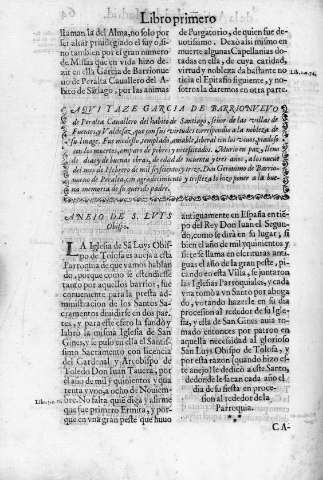 Libro primero
llaman la del Alma, no solo por
ser altar priuilegiado el suyo, si
no tambien por el gran numero
de Missas que en vida hizo de-
zir en ella Garcia de Barrionue-
uo de Peralta Cauallero del A-
bito de Sãtiago, por las animas
de Purgatorio, de quien fue de-
uotissimo. Dexò assi mismo en
muerte algunas Capellanias do-
tadas en ella, de cuya caridad,
virtud y nobleza da bastante no
ticia el Epitafio siguiente, y no-
sotros la daremos en otra parte.
AQVI YAZE GARCIA DE BARRIONVEVO
de Peralta Cauallero del habito de Santiago, señor de las villas de
Fuentes y Valdesaz, que con sus virtudes correspondio a la nobleza de
su linage. Fue modesto, templado, amable, liberal con los viuos, piadoso
con los muertos, amparo de pobres y necessitados. Murio en paz, lleno
de dias y de buenas obras, de edad de ochenta y tres años, a los nueue
del mes de Hebrero de mil y seyscientos y trece. Don Geronimo de Barrio-
nueuo de Peralta, con agradecimiento y tristeza lo hizo poner a la bue-
na memoria de su querido padre.
ANEJO DE S. LVYS
Obispo.
LA Iglesia de Sã Luys Obis-
po de Tolosa es aneja a esta
Parroquia de que vamos hablan
do, porque como se estendiesse
tanto por aquellos barrios, fue
conueniente para la presta ad-
ministracion de los Santos Sa-
cramentos diuidirse en dos par-
tes, y para este efeto la fundò y
labrò la misma Iglesia de San
Gines, y se puso en ella el Santis-
simo Sacramento con licencia
del Cardenal y Arçobispo de
Toledo Don Iuan Tauera, por
el año de mil y quinientos y qua
renta y vno, a ocho de Nouiem-
bre. No falta quiẽ diga y afirme
que fue primero Ermita, y por-
que en vna gran peste que huuo
antiguamente en España en tiẽ-
po del Rey Don Iuan el Segun-
do, como se dirà en su lugar, si
bien el año de mil y quinientos y
siete se llama en escrituras anti-
guas el año de la gran peste, pi-
cando en esta Villa, se juntaron
las Iglesias Parroquiales, y cada
vna tomò a vn Santo por aboga
do, votando hazerle en su dia
procession al rededor de la Igle-
sia, y esta de San Gines auia to-
mado entonces por patron en
aquella necessidad al glorioso
San Luys Obispo de Tolosa, y
por esta razon (quando hizo es-
te anejo) le dedicò a este Santo,
dedonde le sacan cada año el
dia de su fiesta en proces-
sion al rededor de la
Parroquia.
CA-